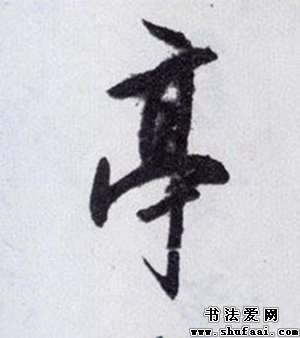 亭
书法爱网
www.shufaai.com